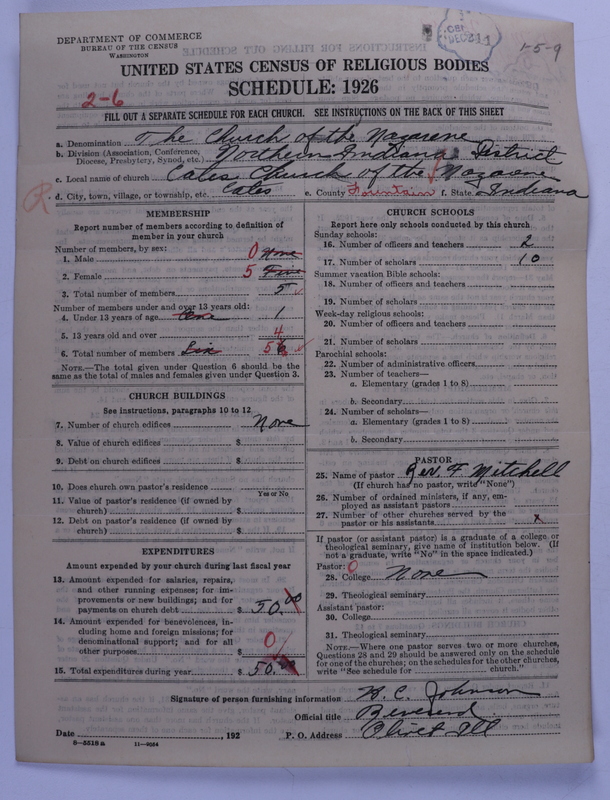 DEPARTMENT OF COMMERCE
BUREAU OF THE CENSUS
WASHINGTON
1-5-9
UNITED STATES CENSUS OF RELIGIOUS BODIES
SCHEDULE: 1926
2-6
FILL OUT A SEPARATE SCHEDULE FOR EACH CHURCH. SEE INSTRUCTIONS ON THE BACK OF THIS SHEET
a. Denomination The Church of the Nazarene
b. Division (Association, Conference, Diocese, Presbytery, Synod, etc.) Northern Indiana District
c. Local name of church Cates Church of the Nazarene
R d. City, town, village, or township, etc. Cates e. County Fountain f. State Indiana
MEMBERSHIP
Report number of members according to definition of member in your church
Number of members, by sex:
1. Male 0 None
2. Female 5 Five
3. Total number of members 5
Number of members under and over 13 years old:
4. Under 13 years of age One 1
5. 13 years old and over 4
6. Total number of members Six 5 6
NOTE.—The total given under Question 6 should be the same as the total of males and females given under Question 3.
CHURCH BUILDINGS
See instructions, paragraphs 10 to 12
7. Number of church edifices None
8. Value of church edifices $
9. Debt on church edifices $
10. Does church own pastor's residence
Yes or No
11. Value of pastor's residence (if owned by church) $
12. Debt on pastor's residence (if owned by church) $
EXPENDITURES
Amount expended by your church during last fiscal year
13. Amount expended for salaries, repairs, and other running expenses; for improvements or new buildings; and for payments on church debt $ 50.00
14. Amount expended for benevolences, including home and foreign missions; for denominational support; and for all other purposes $ 0
15. Total expenditures during year $ 50.00
CHURCH SCHOOLS
Report here only schools conducted by this church
Sunday schools:
16. Number of officers and teachers 2
17. Number of scholars 10
Summer vacation Bible schools:
18. Number of officers and teachers
19. Number of scholars
Week-day religious schools:
20. Number of officers and teachers
21. Number of scholars
Parochial schools:
22. Number of administrative officers
23. Number of teachers—
a. Elementary (grades 1 to 8)
b. Secondary
24. Number of scholars—
a. Elementary (grades 1 to 8)
b. Secondary
PASTOR
25. Name of pastor Rev. F. Mitchell
(If church has no pastor, write "None")
26. Number of ordained ministers, if any, employed as assistant pastors
27. Number of other churches served by the pastor or his assistants x
If pastor (or assistant pastor) is a graduate of a college or theological seminary, give name of institution below. (If not a graduate, write "No" in the space indicated.)
Pastor: 0
28. College None
29. Theological seminary
Assistant pastor:
30. College
31. Theological seminary
NOTE.—Where one pastor serves two or more churches, Questions 28 and 29 should be answered only on the schedule for one of the churches; on the schedules for the other churches, write "See schedule for church."
Signature of person furnishing information H. C. Johnson
Official title Reverend
Date , 192 P. O. Address Olivet Ill
6-5518a 11-9054